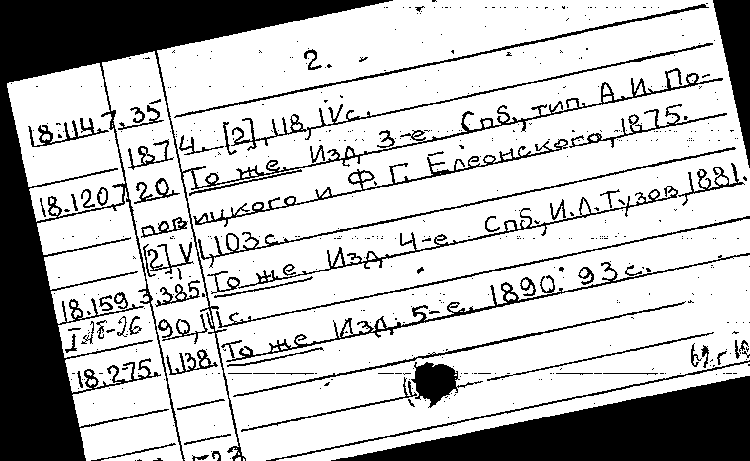 2.
18.114.7.35
1874. [2], 118, IV с.
То же. Изд. 3-е. Спб., тип. А. И. По-
18.120.7.20.
повицкого и Ф. Г. Елеонского, 1875.
[2], VI, 103 с.
То же. Изд. 4-е. Спб., И. Л. Тузов, 1881.
18.159.3.385.
90, III с.
То же. Изд. 5-е. 1890. 93 с.
18.275.1.138.